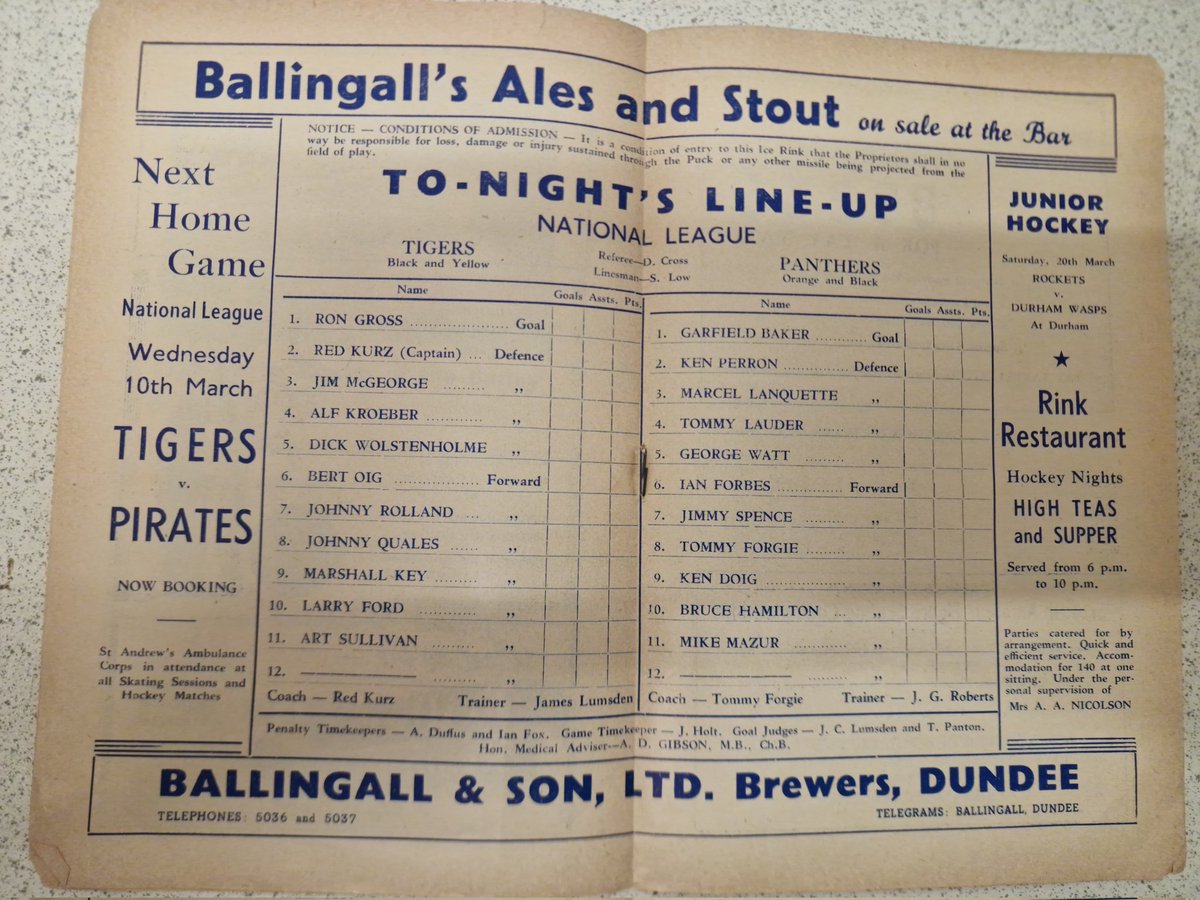 Ballingall's Ales and Stout on sale at the Bar
Next
Home
Game
National League
Wednesday
10th March
TIGERS
v.
PIRATES
NOW BOOKING
St Andrew's Ambulance
Corps in attendance at
all Skating Sessions and
Hockey Matches
NOTICE — CONDITIONS OF ADMISSION — It is a condition of entry to this Ice Rink that the Proprietors shall in no
way be responsible for loss, damage or injury sustained through the Puck or any other missile being projected from the
field of play.
TO-NIGHT'S LINE-UP
NATIONAL LEAGUE
TIGERS
Black and Yellow
Referee—D. Cross
Linesman—S. Low
PANTHERS
Orange and Black
Name Goals Assts. Pts.
1. RON GROSS ........................ Goal
2. RED KURZ (Captain) ... Defence
3. JIM McGEORGE ......... ,,
4. ALF KROEBER ............ ,,
5. DICK WOLSTENHOLME ,,
6. BERT OIG .................. Forward
7. JOHNNY ROLLAND ... ,,
8. JOHNNY QUALES ...... ,,
9. MARSHALL KEY ......... ,,
10. LARRY FORD ............ ,,
11. ART SULLIVAN ......... ,,
12. ——————— ......... ,,
Coach — Red Kurz Trainer — James Lumsden
Name Goals Assts. Pts.
1. GARFIELD BAKER ............ Goal
2. KEN PERRON ............... Defence
3. MARCEL LANQUETTE ,,
4. TOMMY LAUDER ...... ,,
5. GEORGE WATT ......... ,,
6. IAN FORBES ............... Forward
7. JIMMY SPENCE ......... ,,
8. TOMMY FORGIE ......... ,,
9. KEN DOIG .................. ,,
10. BRUCE HAMILTON ... ,,
11. MIKE MAZUR ............ ,,
12. ——————— ......... ,,
Coach — Tommy Forgie Trainer — J. G. Roberts
Penalty Timekeepers — A. Duffus and Ian Fox. Game Timekeeper — J. Holt. Goal Judges — J. C. Lumsden and T. Panton.
Hon. Medical Adviser—A. D. GIBSON, M.B., Ch.B.
JUNIOR
HOCKEY
Saturday, 20th March
ROCKETS
v.
DURHAM WASPS
At Durham
★
Rink
Restaurant
Hockey Nights
HIGH TEAS
and SUPPER
Served from 6 p.m.
to 10 p.m.
Parties catered for by
arrangement. Quick and
efficient service. Accom-
modation for 140 at one
sitting. Under the per-
sonal supervision of
Mrs A. A. NICOLSON
BALLINGALL & SON, LTD. Brewers, DUNDEE
TELEPHONES: 5036 and 5037 TELEGRAMS: BALLINGALL, DUNDEE